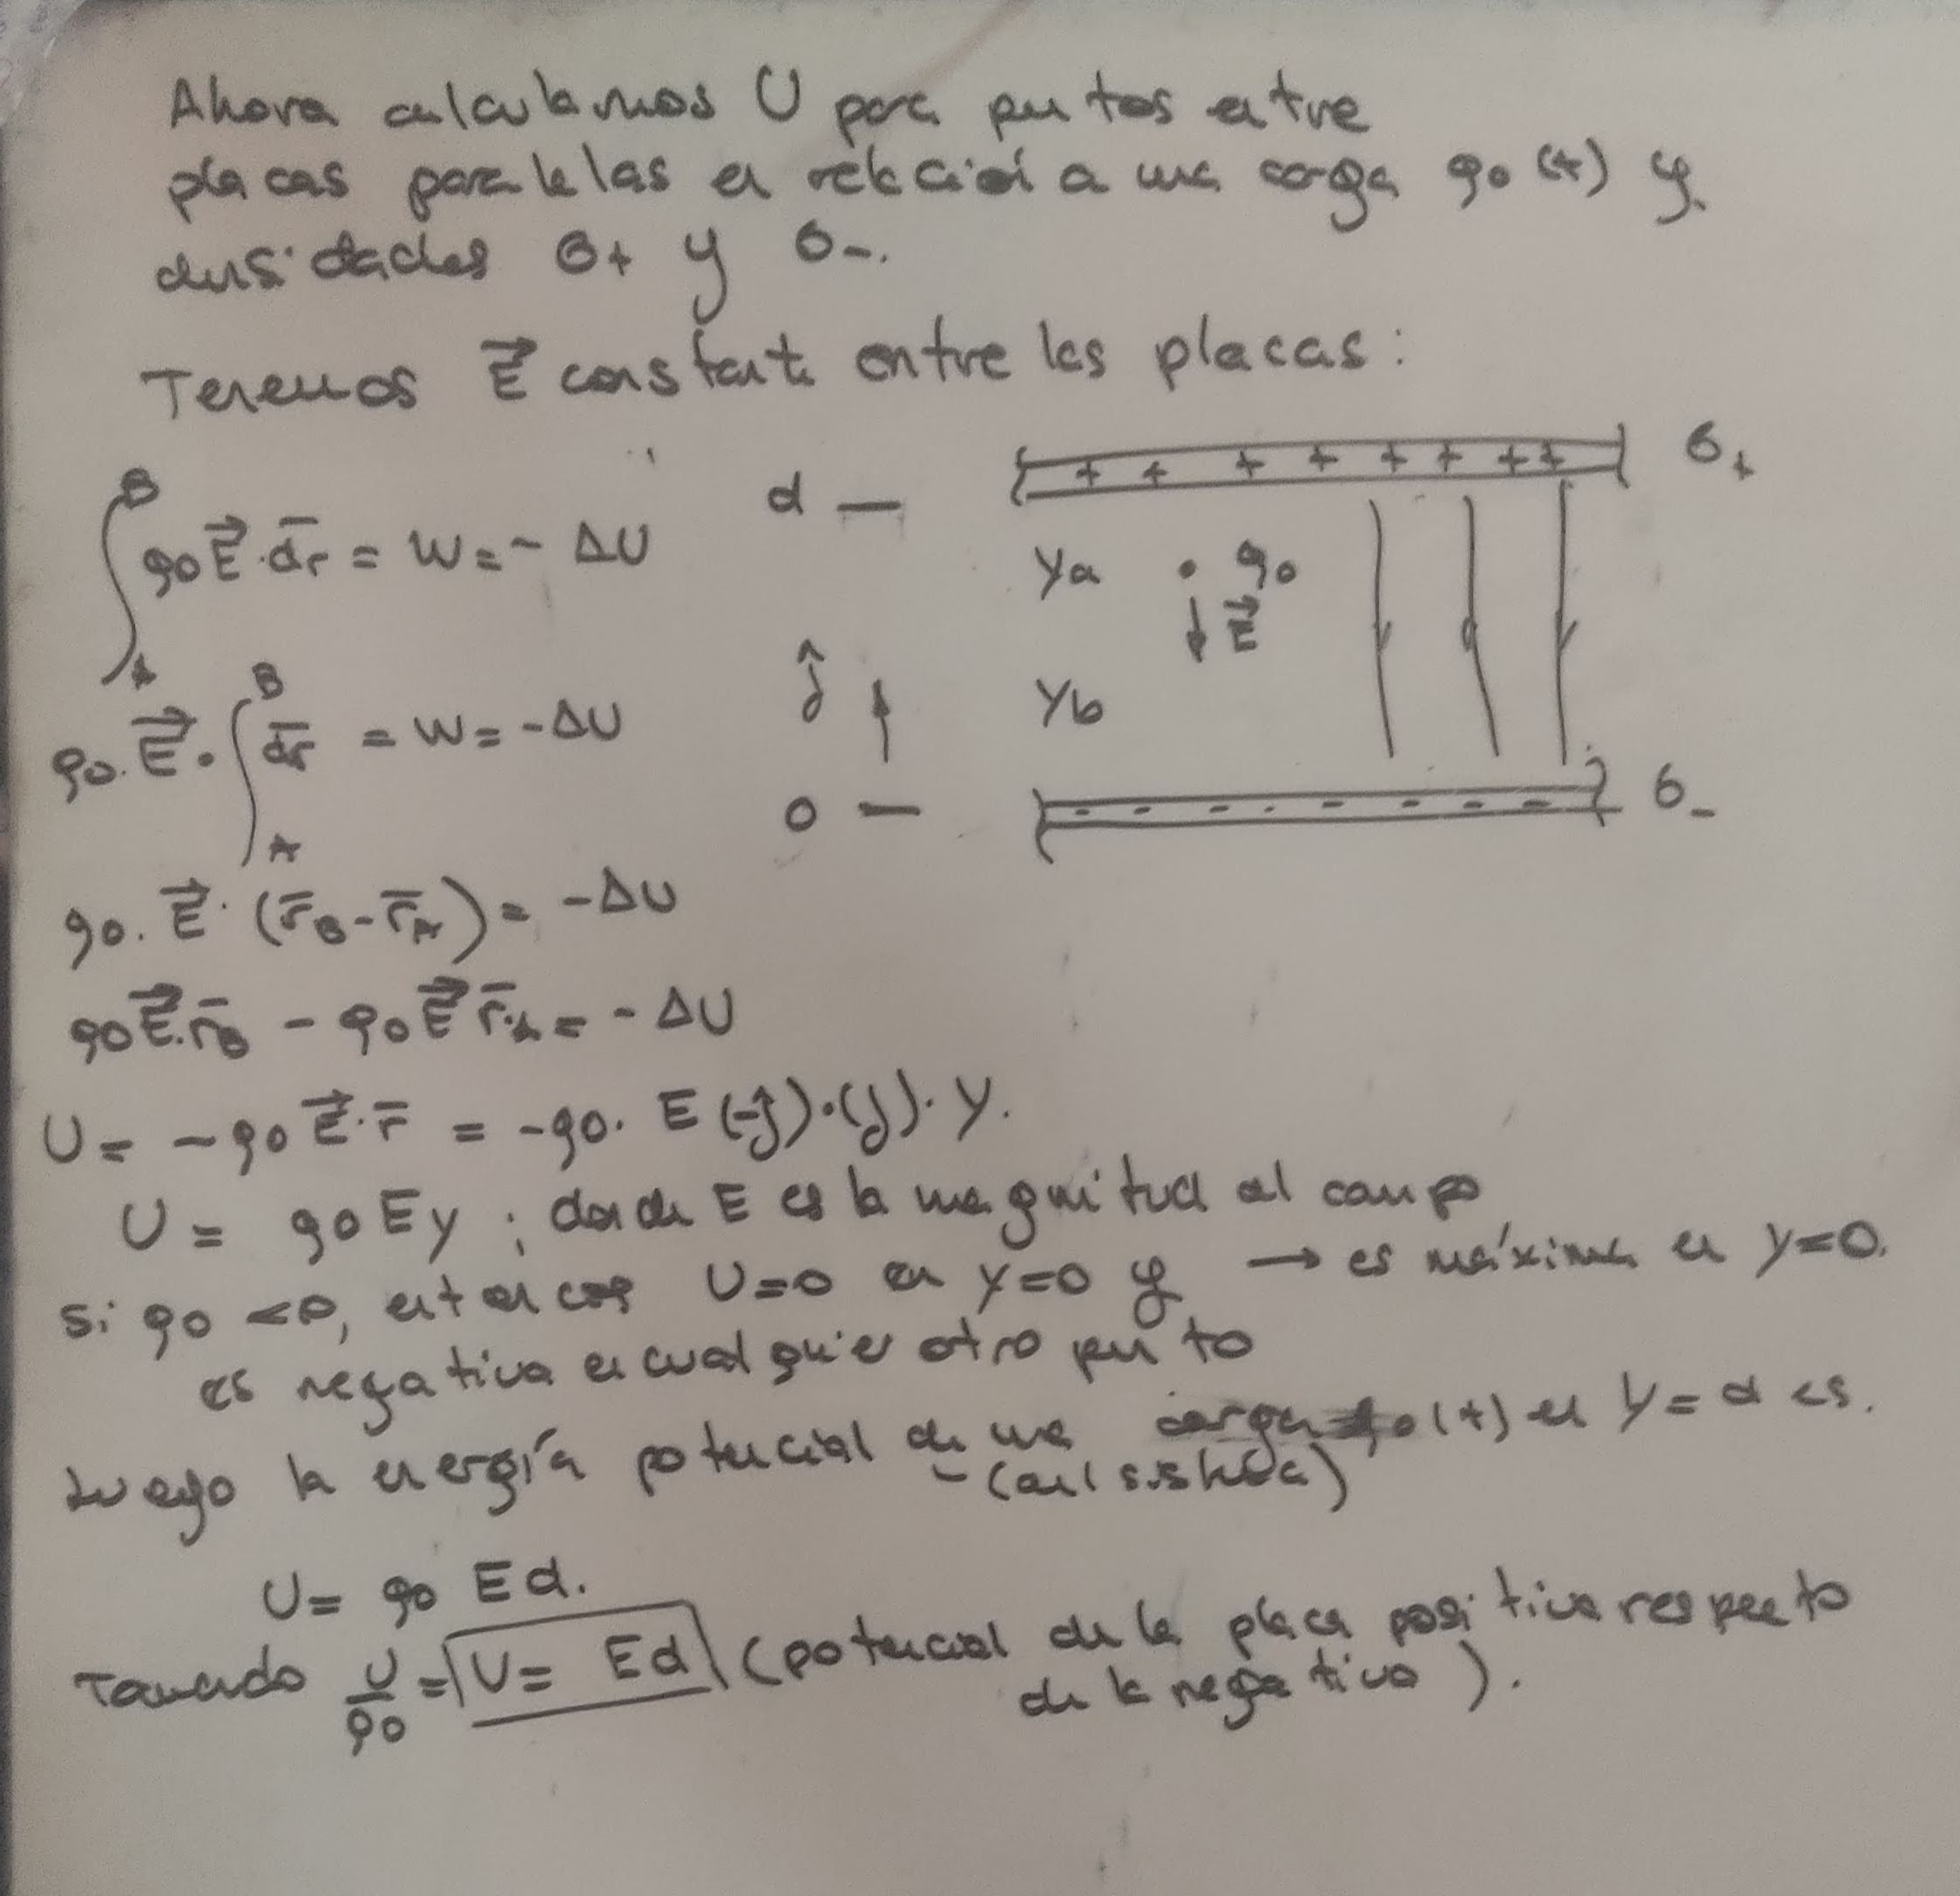 Ahora calculamos U para puntos entre
placas paralelas en relación a una carga q0 (+) y
densidades σ+ y σ-.
Tenemos E⃗ constante entre las placas:
∫_A^B q0 E⃗ · d̄r = W = - ΔU
q0 · E⃗ · ∫_A^B d̄r = W = -ΔU
d —
+ + + + + + + +
σ+
ya · q0
↓ E⃗
ĵ ↑
yb
0 —
- - - - - - - -
σ-
q0 · E⃗ · (r̄B - r̄A) = -ΔU
q0 E⃗ · r̄B - q0 E⃗ r̄A = - ΔU
U = - q0 E⃗ · r̄ = -q0 · E (-ĵ) · (ĵ) · y.
U = q0 E y ; donde E es la magnitud del campo
si q0 <0, entonces U=0 en y=0 y → es máxima en y=0.
es negativa en cualquier otro punto
Luego la energía potencial de una carga q0 (+) en y = d es.
(del sistema)
U = q0 Ed.
Tomando U/q0 = V = Ed (potencial de la placa positiva respecto
de la negativa).